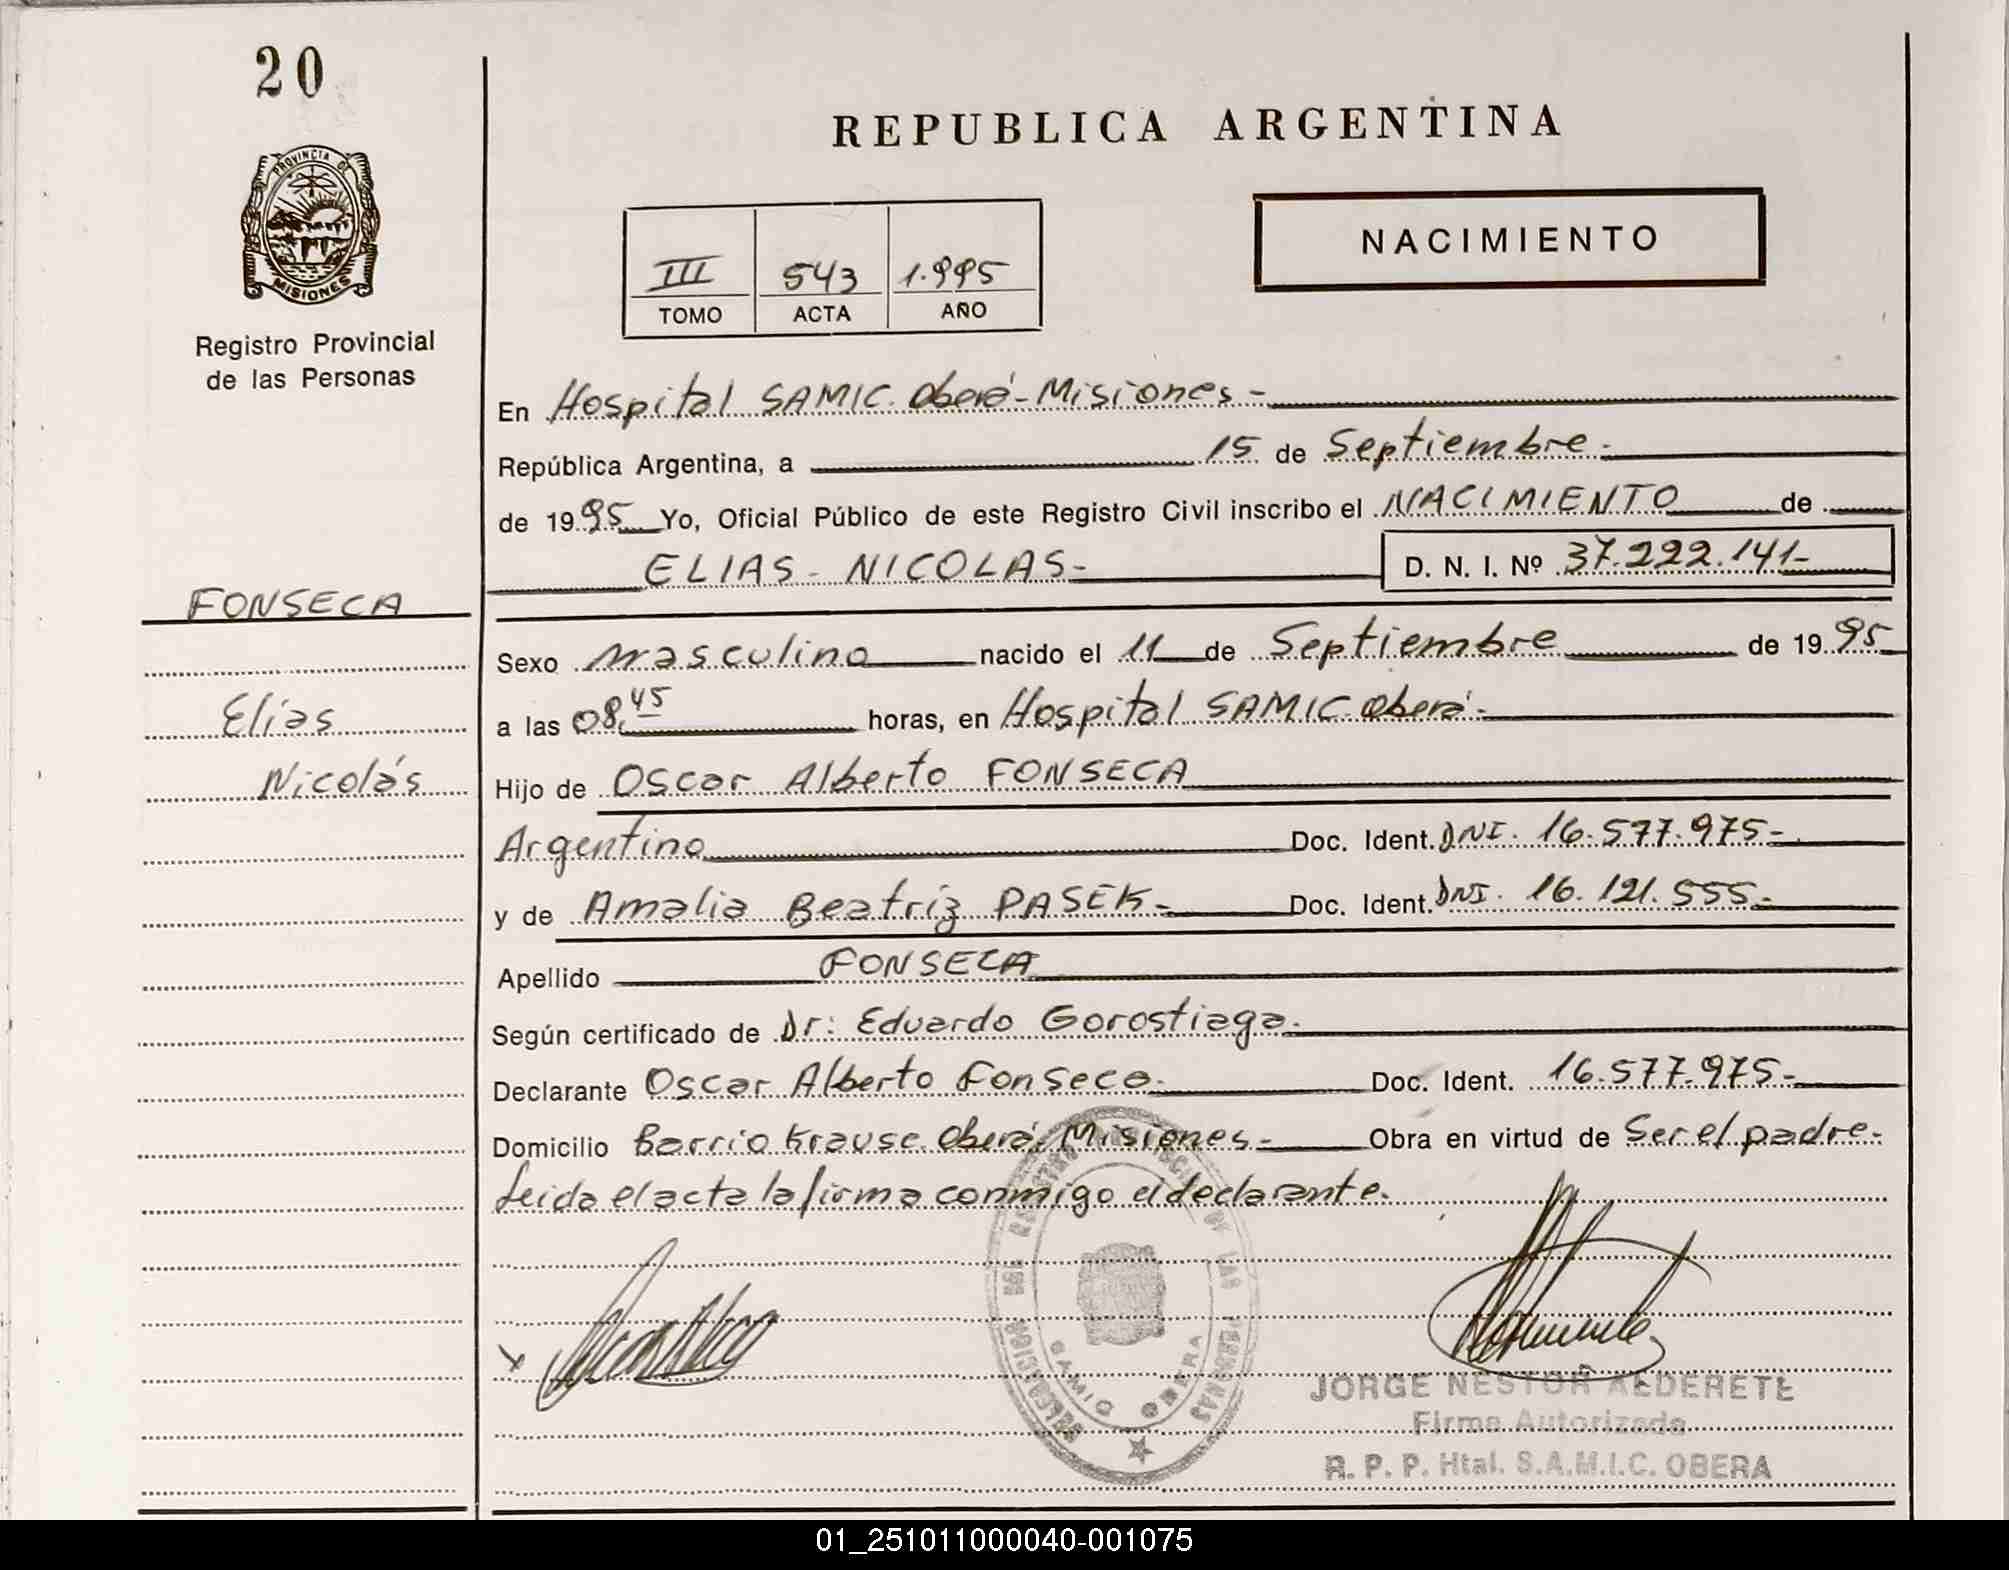 20
REPUBLICA ARGENTINA
PROVINCIA DE
MISIONES
NACIMIENTO
III 543 1.995
TOMO ACTA AÑO
Registro Provincial
de las Personas
En Hospital SAMIC. Oberá - Misiones -
República Argentina, a 15 de Septiembre.
de 1995 Yo, Oficial Público de este Registro Civil inscribo el NACIMIENTO de
ELIAS - NICOLAS - D. N. I. Nº 37.222.141-
FONSECA
Elías
Nicolás
Sexo masculino nacido el 11 de Septiembre de 1995
a las 08.45 horas, en Hospital SAMIC Oberá-
Hijo de Oscar Alberto FONSECA
Argentino Doc. Ident. DNI. 16.577.975-
y de Amalia Beatríz PASEK- Doc. Ident. DNI. 16.121.555-
Apellido FONSECA
Según certificado de Dr: Eduardo Gorostiaga.
Declarante Oscar Alberto Fonseca. Doc. Ident. 16.577.975-
Domicilio Barrio Krause. Oberá. Misiones.- Obra en virtud de Ser el padre.
Leida el acta la firma conmigo el declarante.
DELEGACION DEL REGISTRO PROVINCIAL DE LAS PERSONAS
SAMIC OBERA
JORGE NESTOR ALDERETE
Firma Autorizada
R. P. P. Htal. S.A.M.I.C. OBERA
01_251011000040-001075